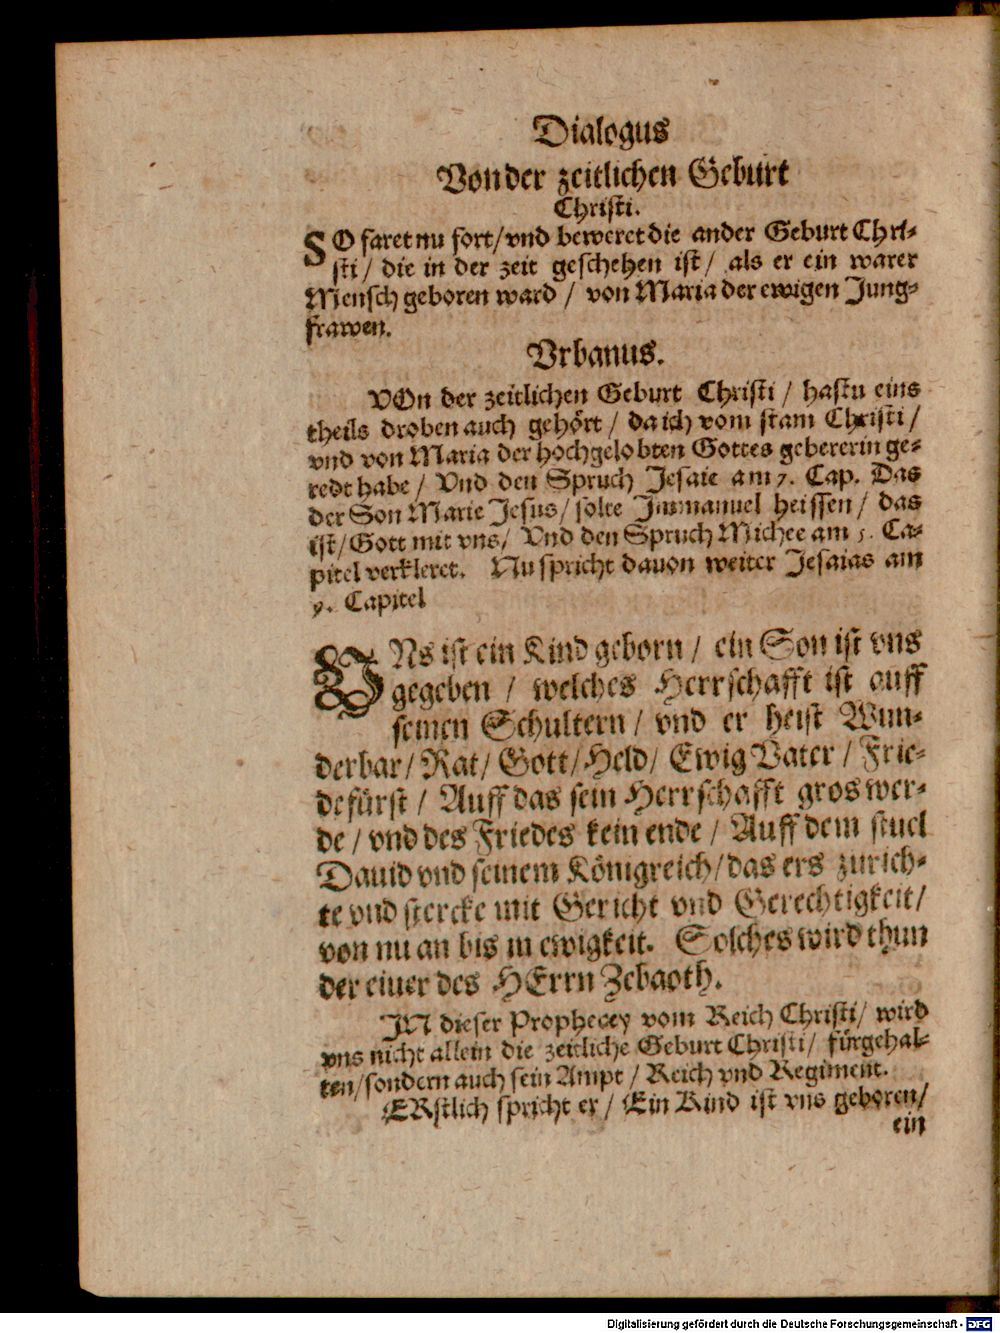 Dialogus
Von der zeitlichen Geburt
Christi.
SO faret nu fort/ vnd beweret die ander Geburt Chri-
sti/ die in der zeit geschehen ist/ als er ein warer
Mensch geboren ward/ von Maria der ewigen Jung-
frawen.
Vrbanus.
VOn der zeitlichen Geburt Christi/ hastu eins
theils droben auch gehört/ da ich vom stam Christi/
vnd von Maria der hochgelobten Gottes gebererin ge-
redt habe/ Vnd den Spruch Jesaie am 7. Cap. Das
der Son Marie Jesus/ solte Immanuel heissen/ das
ist/ Gott mit vns/ Vnd den Spruch Michee am 5. Ca-
pitel verkleret. Nu spricht dauon weiter Jesaias am
9. Capitel
VNs ist ein Kind geborn/ ein Son ist vns
gegeben/ welches Herrschafft ist auff
seinen Schultern/ vnd er heist Wun-
derbar/ Rat/ Gott/ Held/ Ewig Vater/ Frie-
defürst/ Auff das sein Herrschafft gros wer-
de/ vnd des Friedes kein ende/ Auff dem stuel
Dauid vnd seinem Königreich/ das ers zurich-
te vnd stercke mit Gericht vnd Gerechtigkeit/
von nu an bis in ewigkeit. Solches wird thun
der eiuer des HErrn Zebaoth.
IN dieser Prophecey vom Reich Christi/ wird
vns nicht allein die zeitliche Geburt Christi/ fürgehal-
ten/ sondern auch sein Ampt/ Reich vnd Regiment.
ERstlich spricht er/ Ein Kind ist vns geboren/
ein
Digitalisierung gefördert durch die Deutsche Forschungsgemeinschaft - DFG